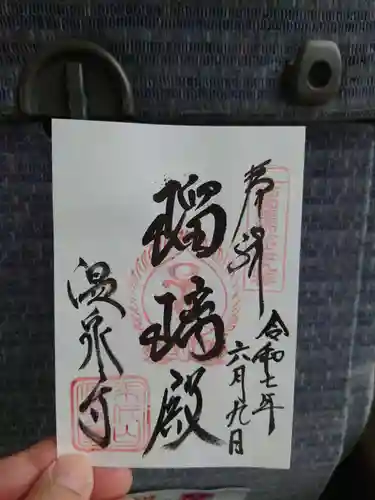 奉拝
令和七年
六月九日
瑠璃殿
温泉寺